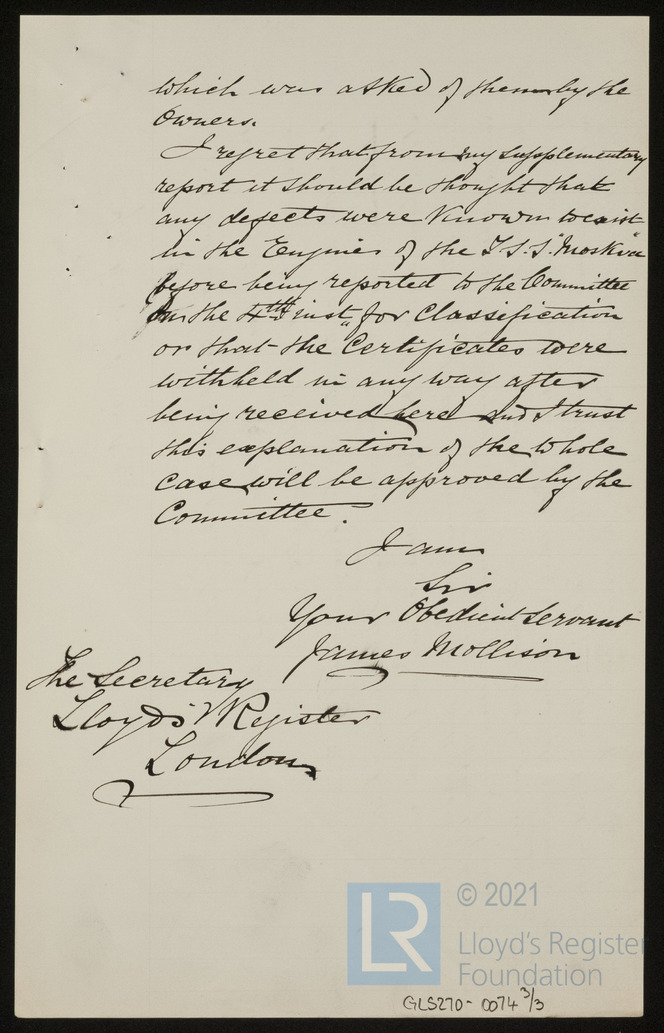 which was asked of them by the
Owners.
I regret that from my supplementary
report it should be thought that
any defects were known to exist
in the Engines of the T.S.S. "Moskva"
before being reported to the Committee
on the 4th inst" for Classification
or that the Certificates were
withheld in any way after
being received here and I trust
this explanation of the whole
case will be approved by the
Committee.
I am
Sir
Your Obedient Servant
James Mollison
The Secretary
Lloyds Register
London
LR
© 2021
Lloyd's Register
Foundation
GLS270-0074 3/3